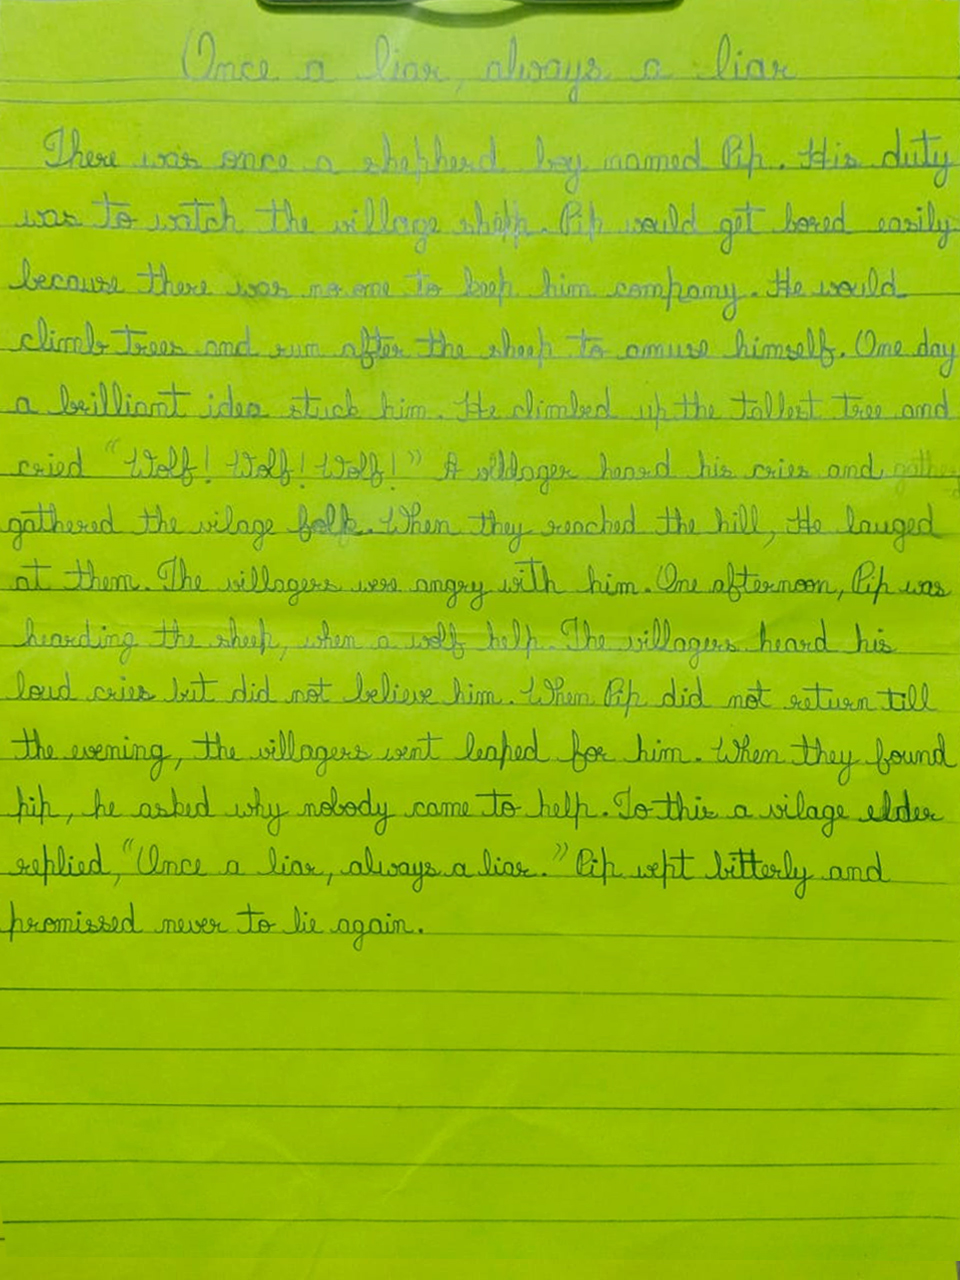 Once a liar, always a liar
There was once a shepherd boy named Pip. His duty
was to watch the village shepp. Pip would get bored easily
because there was no one to keep him company. He would
climb trees and run after the sheep to amuse himself. One day
a brilliant idea stuck him. He climbed up the tallest tree and
cried "Wolf! Wolf! Wolf!" A villager heard his cries and gather
gathered the vilage folk. When they reached the hill, He lauged
at them. The villagers were angry with him. One afternoon, Pip was
hearding the sheep, when a wolf help. The villagers heard his
loud cries but did not believe him. When Pip did not return till
the evening, the villagers went leaped for him. When they found
pip, he asked why nobody came to help. To this a vilage elder
replied, "Once a liar, always a liar." Pip wept bitterly and
promissed never to lie again.